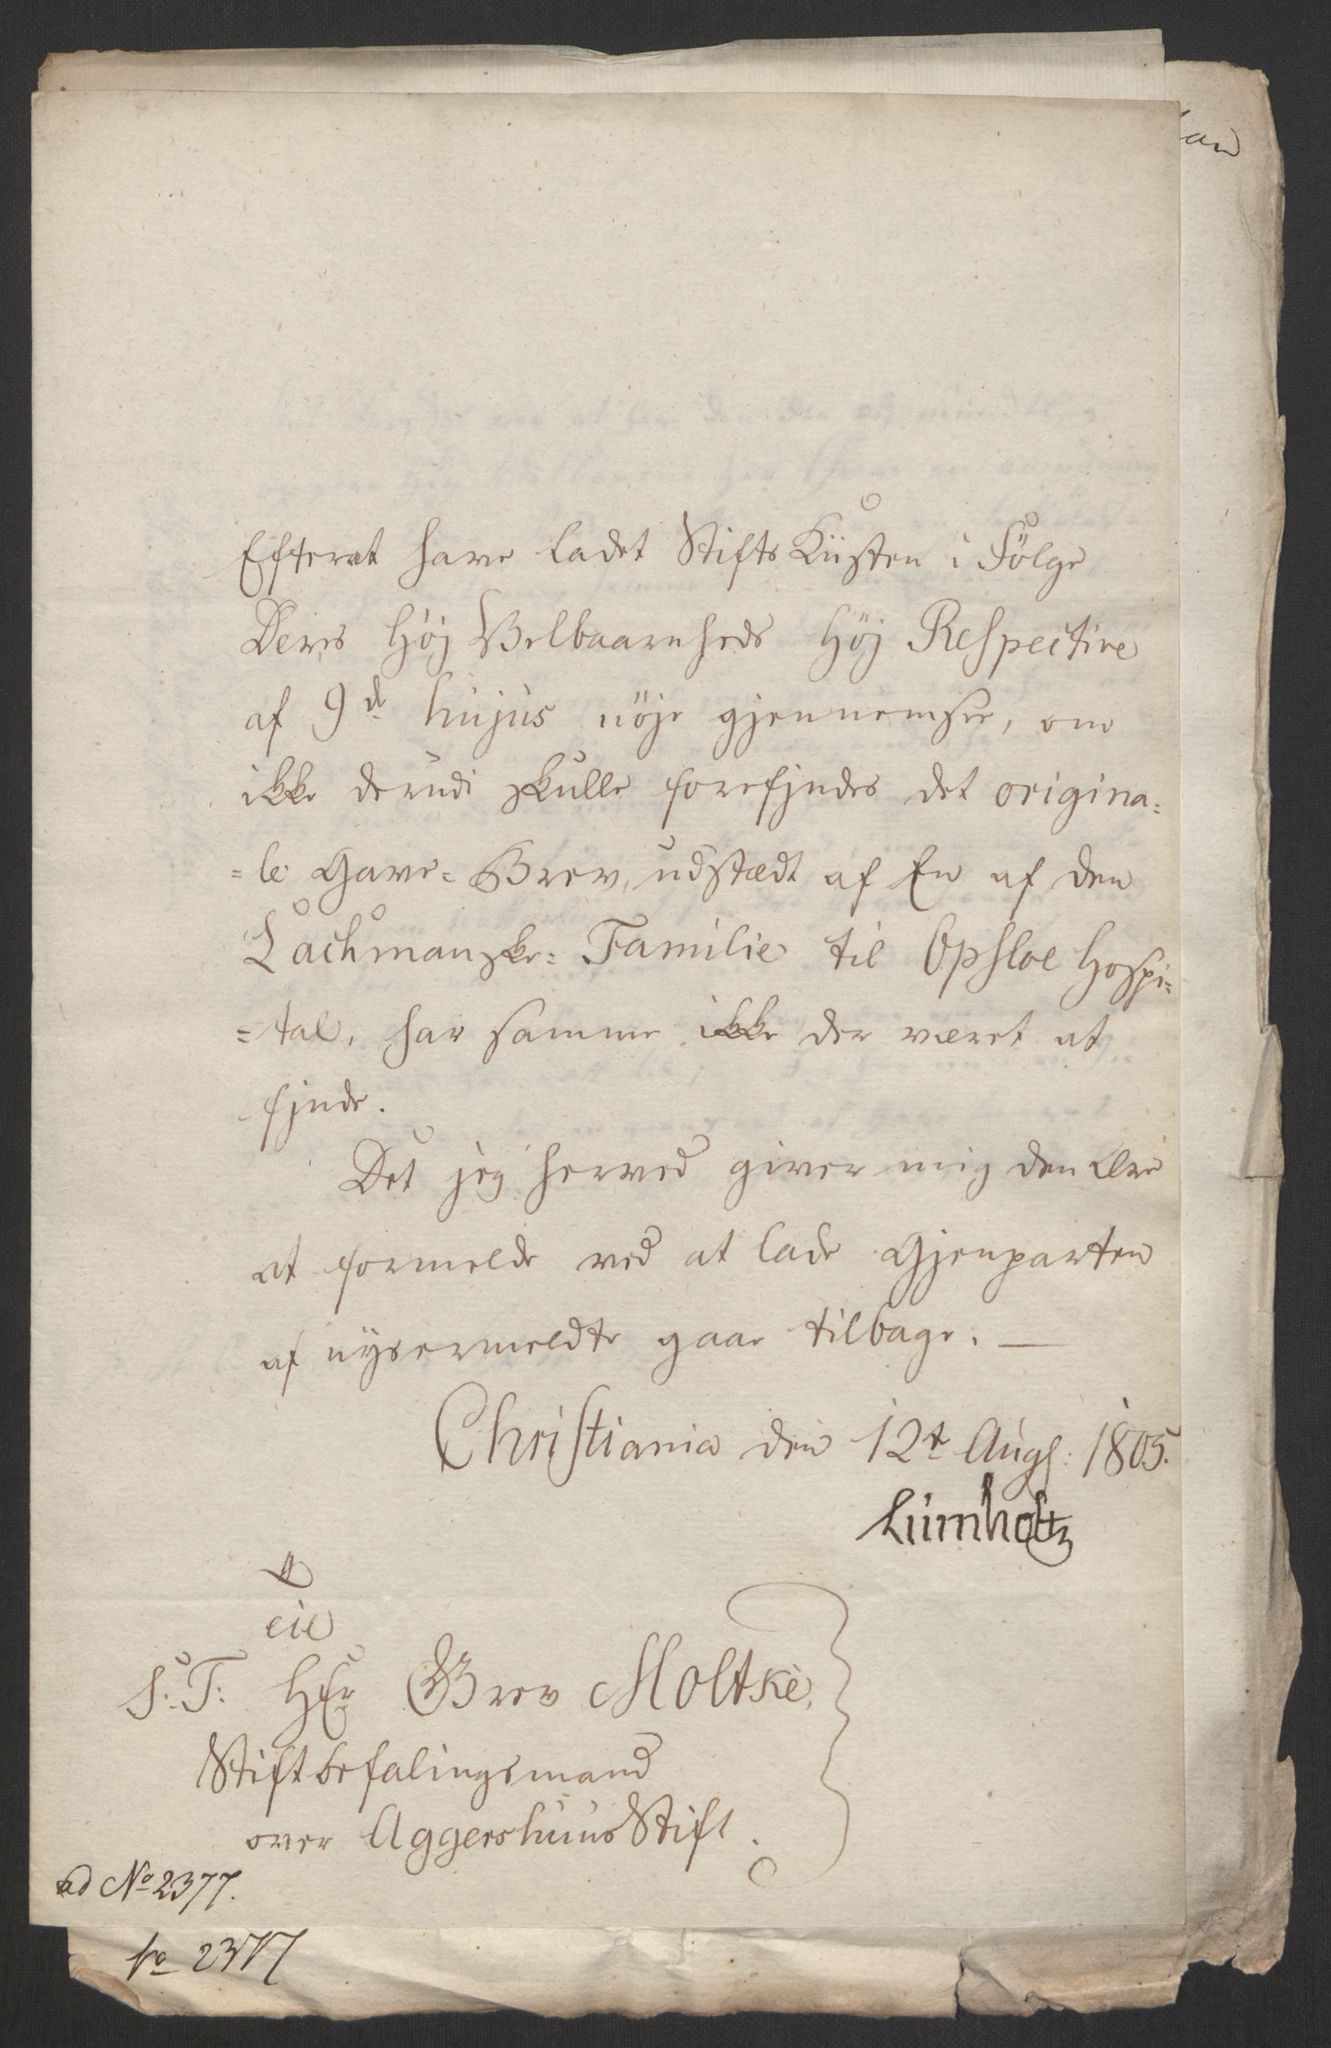 Efterat have ladet Stifts Kiisten i Fölge
Deres Høj Velbaarnheds Høj Respective
af 9de hujus nöje gjennemsee, om
ikke derudi skulle forefindes det origina=
=le Gave=Brev, udstædt af En af den
Lachmanske=Familie til Opsloe Hospi=
=tal, har samme ikke der været at
finde.
Det jeg herved giver mig den Ære
at formelde ved at lade Gjenparten
af nysermeldte gaae tilbage. —
Christiania den 12t Augs: 1805.
Lumholtz
S: T: HEr Grev Moltke,
Stiftbefalingsmand
over AggershuusStift.
ad No 2377.
No 2377